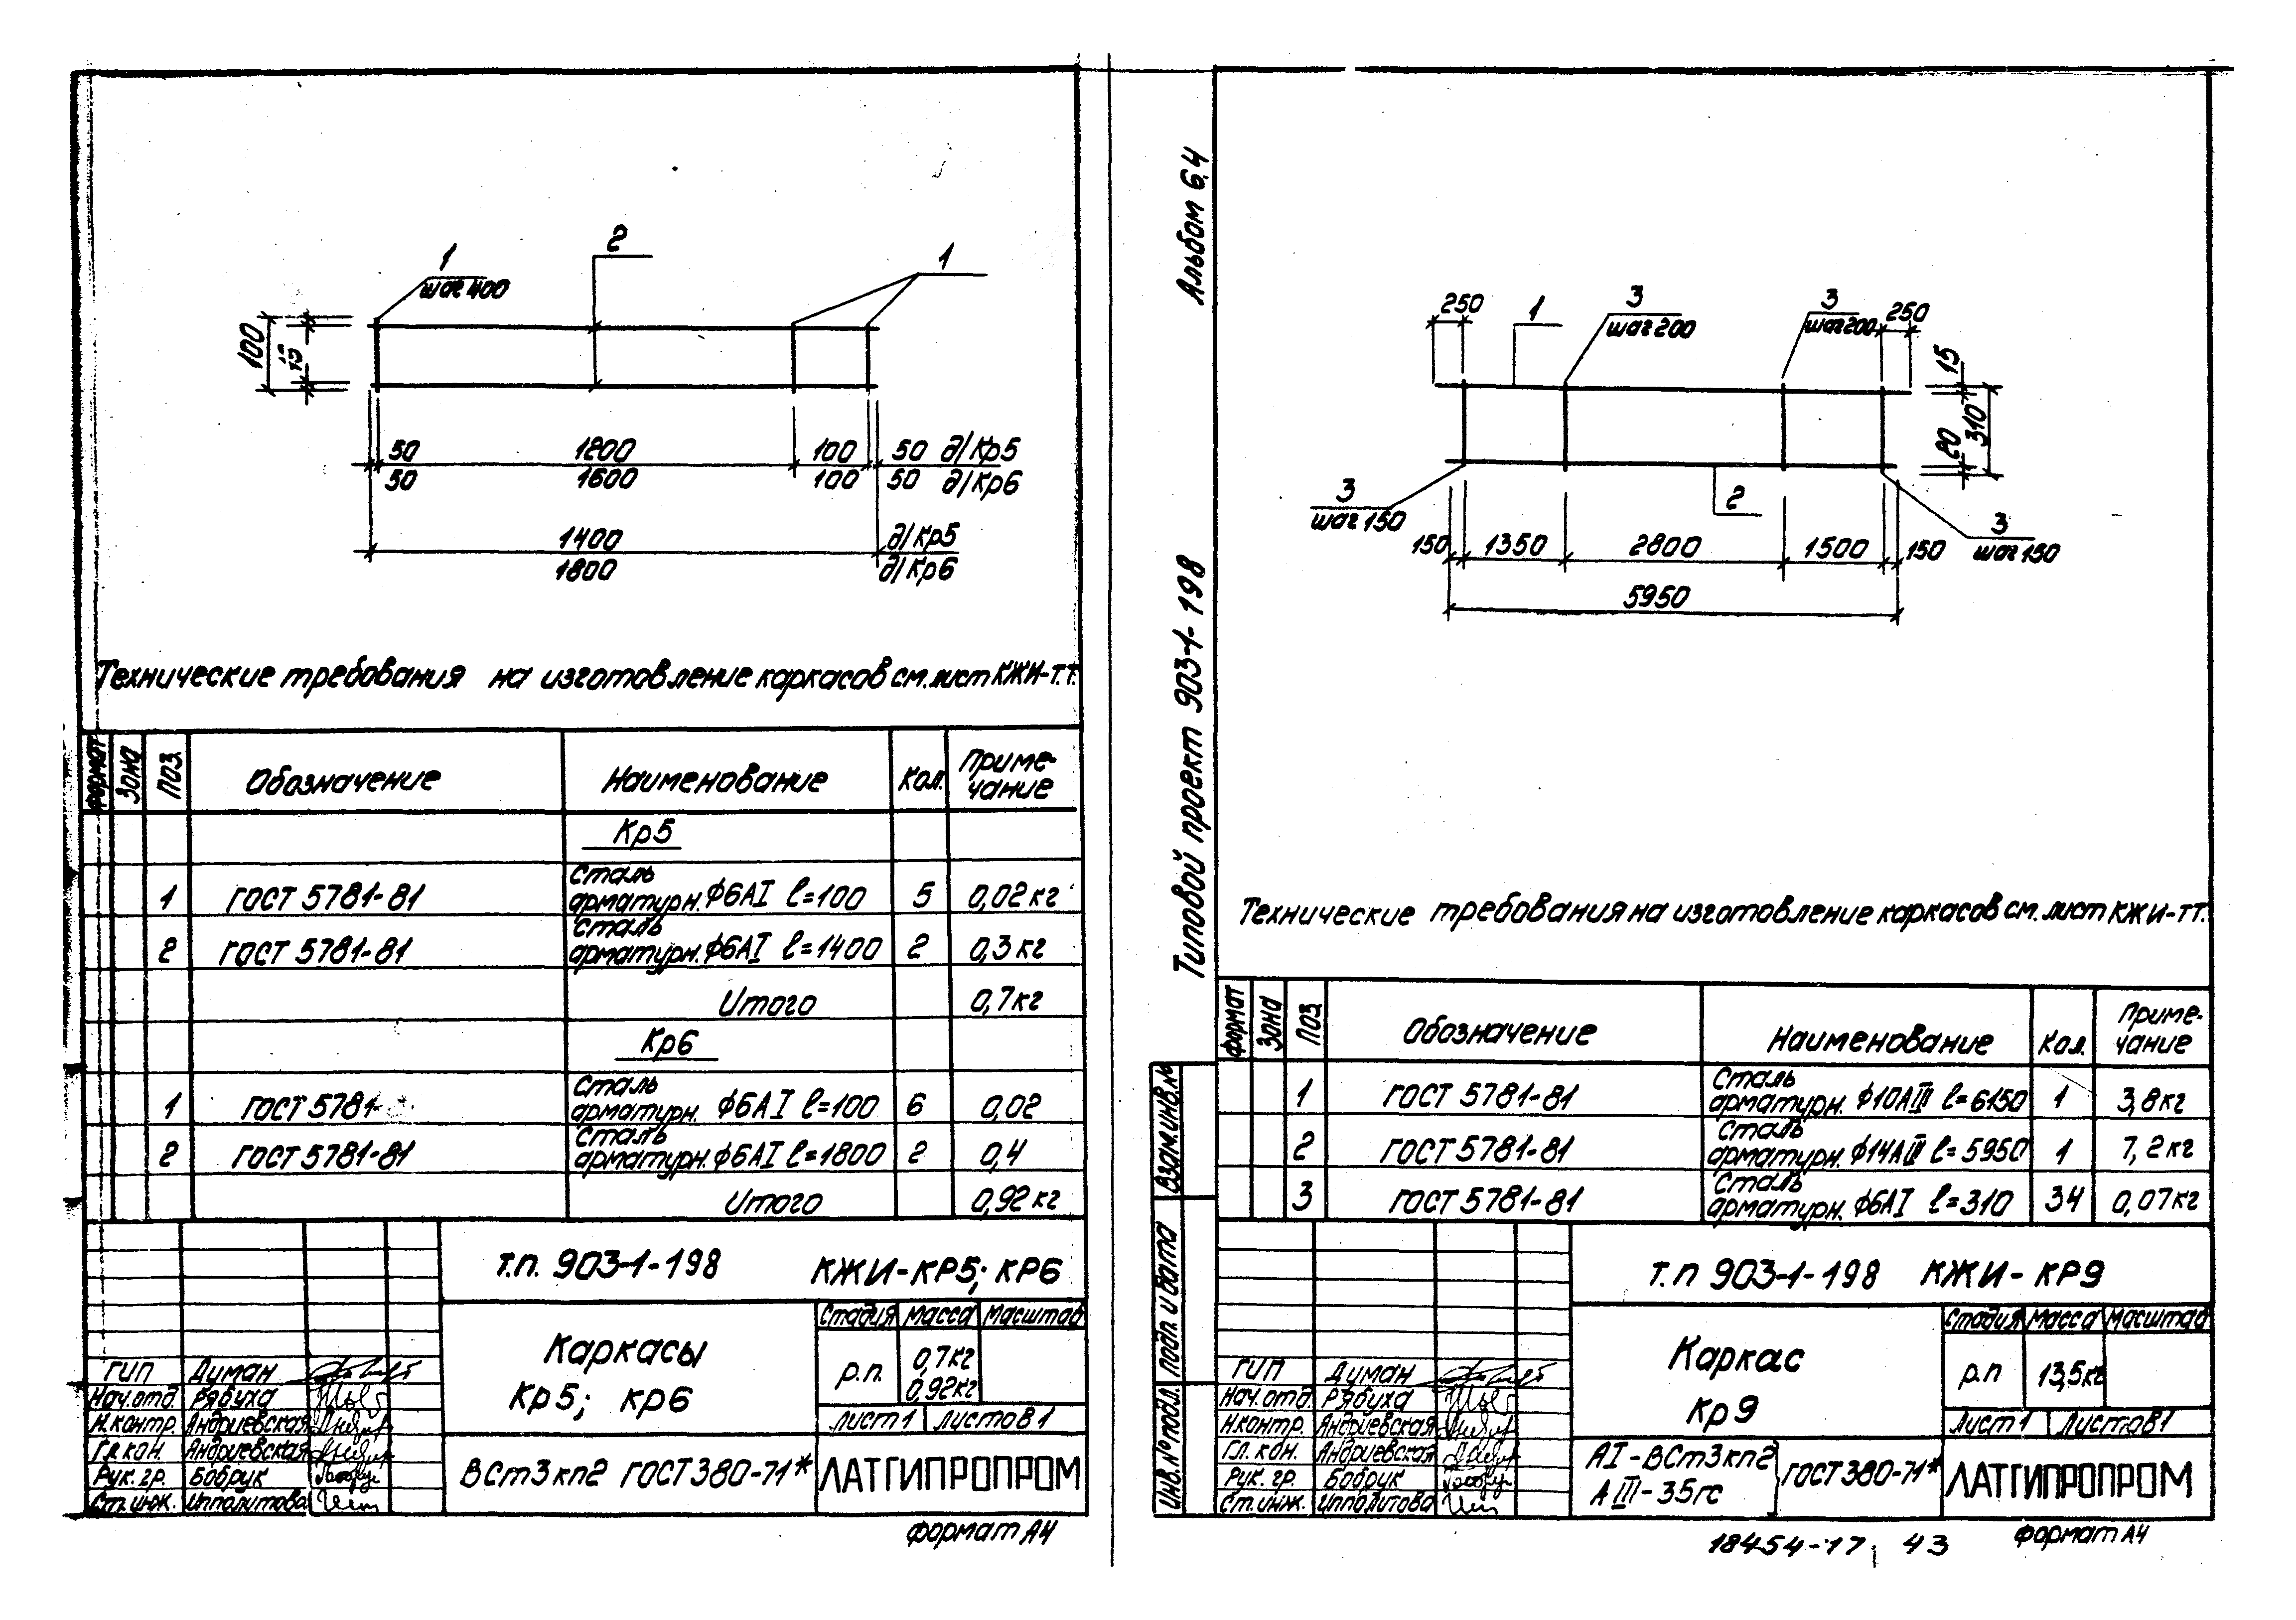 1
шаг 400
2
1
100
15
50 1200 100 50 д/Кр5
50 1600 100 50 д/Кр6
1400 д/Кр5
1800 д/Кр6
Технические требования на изготовление каркасов см. лист КЖИ-Т.Т.
Формат Зона Поз. Обозначение Наименование Кол. Приме-
чание
Кр5
1 ГОСТ 5781-81 Сталь
арматурн. ф6АI ℓ=100 5 0,02 кг
2 ГОСТ 5781-81 Сталь
арматурн. ф6АI ℓ=1400 2 0,3 кг
Итого 0,7 кг
Кр6
1 ГОСТ 5781- Сталь
арматурн. ф6АI ℓ=100 6 0,02
2 ГОСТ 5781-81 Сталь
арматурн. ф6АI ℓ=1800 2 0,4
Итого 0,92 кг
Т.П. 903-1-198 КЖИ-КР5; КР6
Каркасы
Кр5; кр6
Стадия Масса Масштаб
Р.П. 0,7кг
0,92кг
Лист 1 Листов 1
ГИП Думан
Нач.отд. Рябуха
Н.контр. Андриевская
Гл.кон. Андриевская
Рук. гр. Бобрук
Ст. инж. Ипполитова
ВСт3кп2 ГОСТ380-71*
ЛАТГИПРОПРОМ
Формат А4
Альбом 6.4
Типовой проект 903-1-198
250
1
3
шаг 200
3
шаг 200
250
15
310
20
3
шаг 150
2
3
шаг 150
150 1350 2800 1500 150
5950
Технические требования на изготовление каркасов см. лист КЖИ-ТТ.
Формат Зона Поз. Обозначение Наименование Кол. Приме-
чание
1 ГОСТ 5781-81 Сталь
арматурн. ф10АIII ℓ=6150 1 3,8 кг
2 ГОСТ 5781-81 Сталь
арматурн. ф14АIII ℓ=5950 1 7,2 кг
3 ГОСТ 5781-81 Сталь
арматурн. ф6АI ℓ=310 34 0,07 кг
Взам.инв.№
Подп. и дата
Инв.№ подл.
Т.П 903-1-198 КЖИ-КР9
Каркас
Кр9
Стадия Масса Масштаб
Р.П 13,5кг
Лист 1 Листов 1
ГИП Думан
Нач.отд. Рябуха
Н.контр. Андриевская
Гл. кон. Андриевская
Рук. гр. Бобрук
Ст. инж. Ипполитова
АI-ВСт3кп2
АIII-35гс
ГОСТ380-71*
ЛАТГИПРОПРОМ
18454-17 43
Формат А4